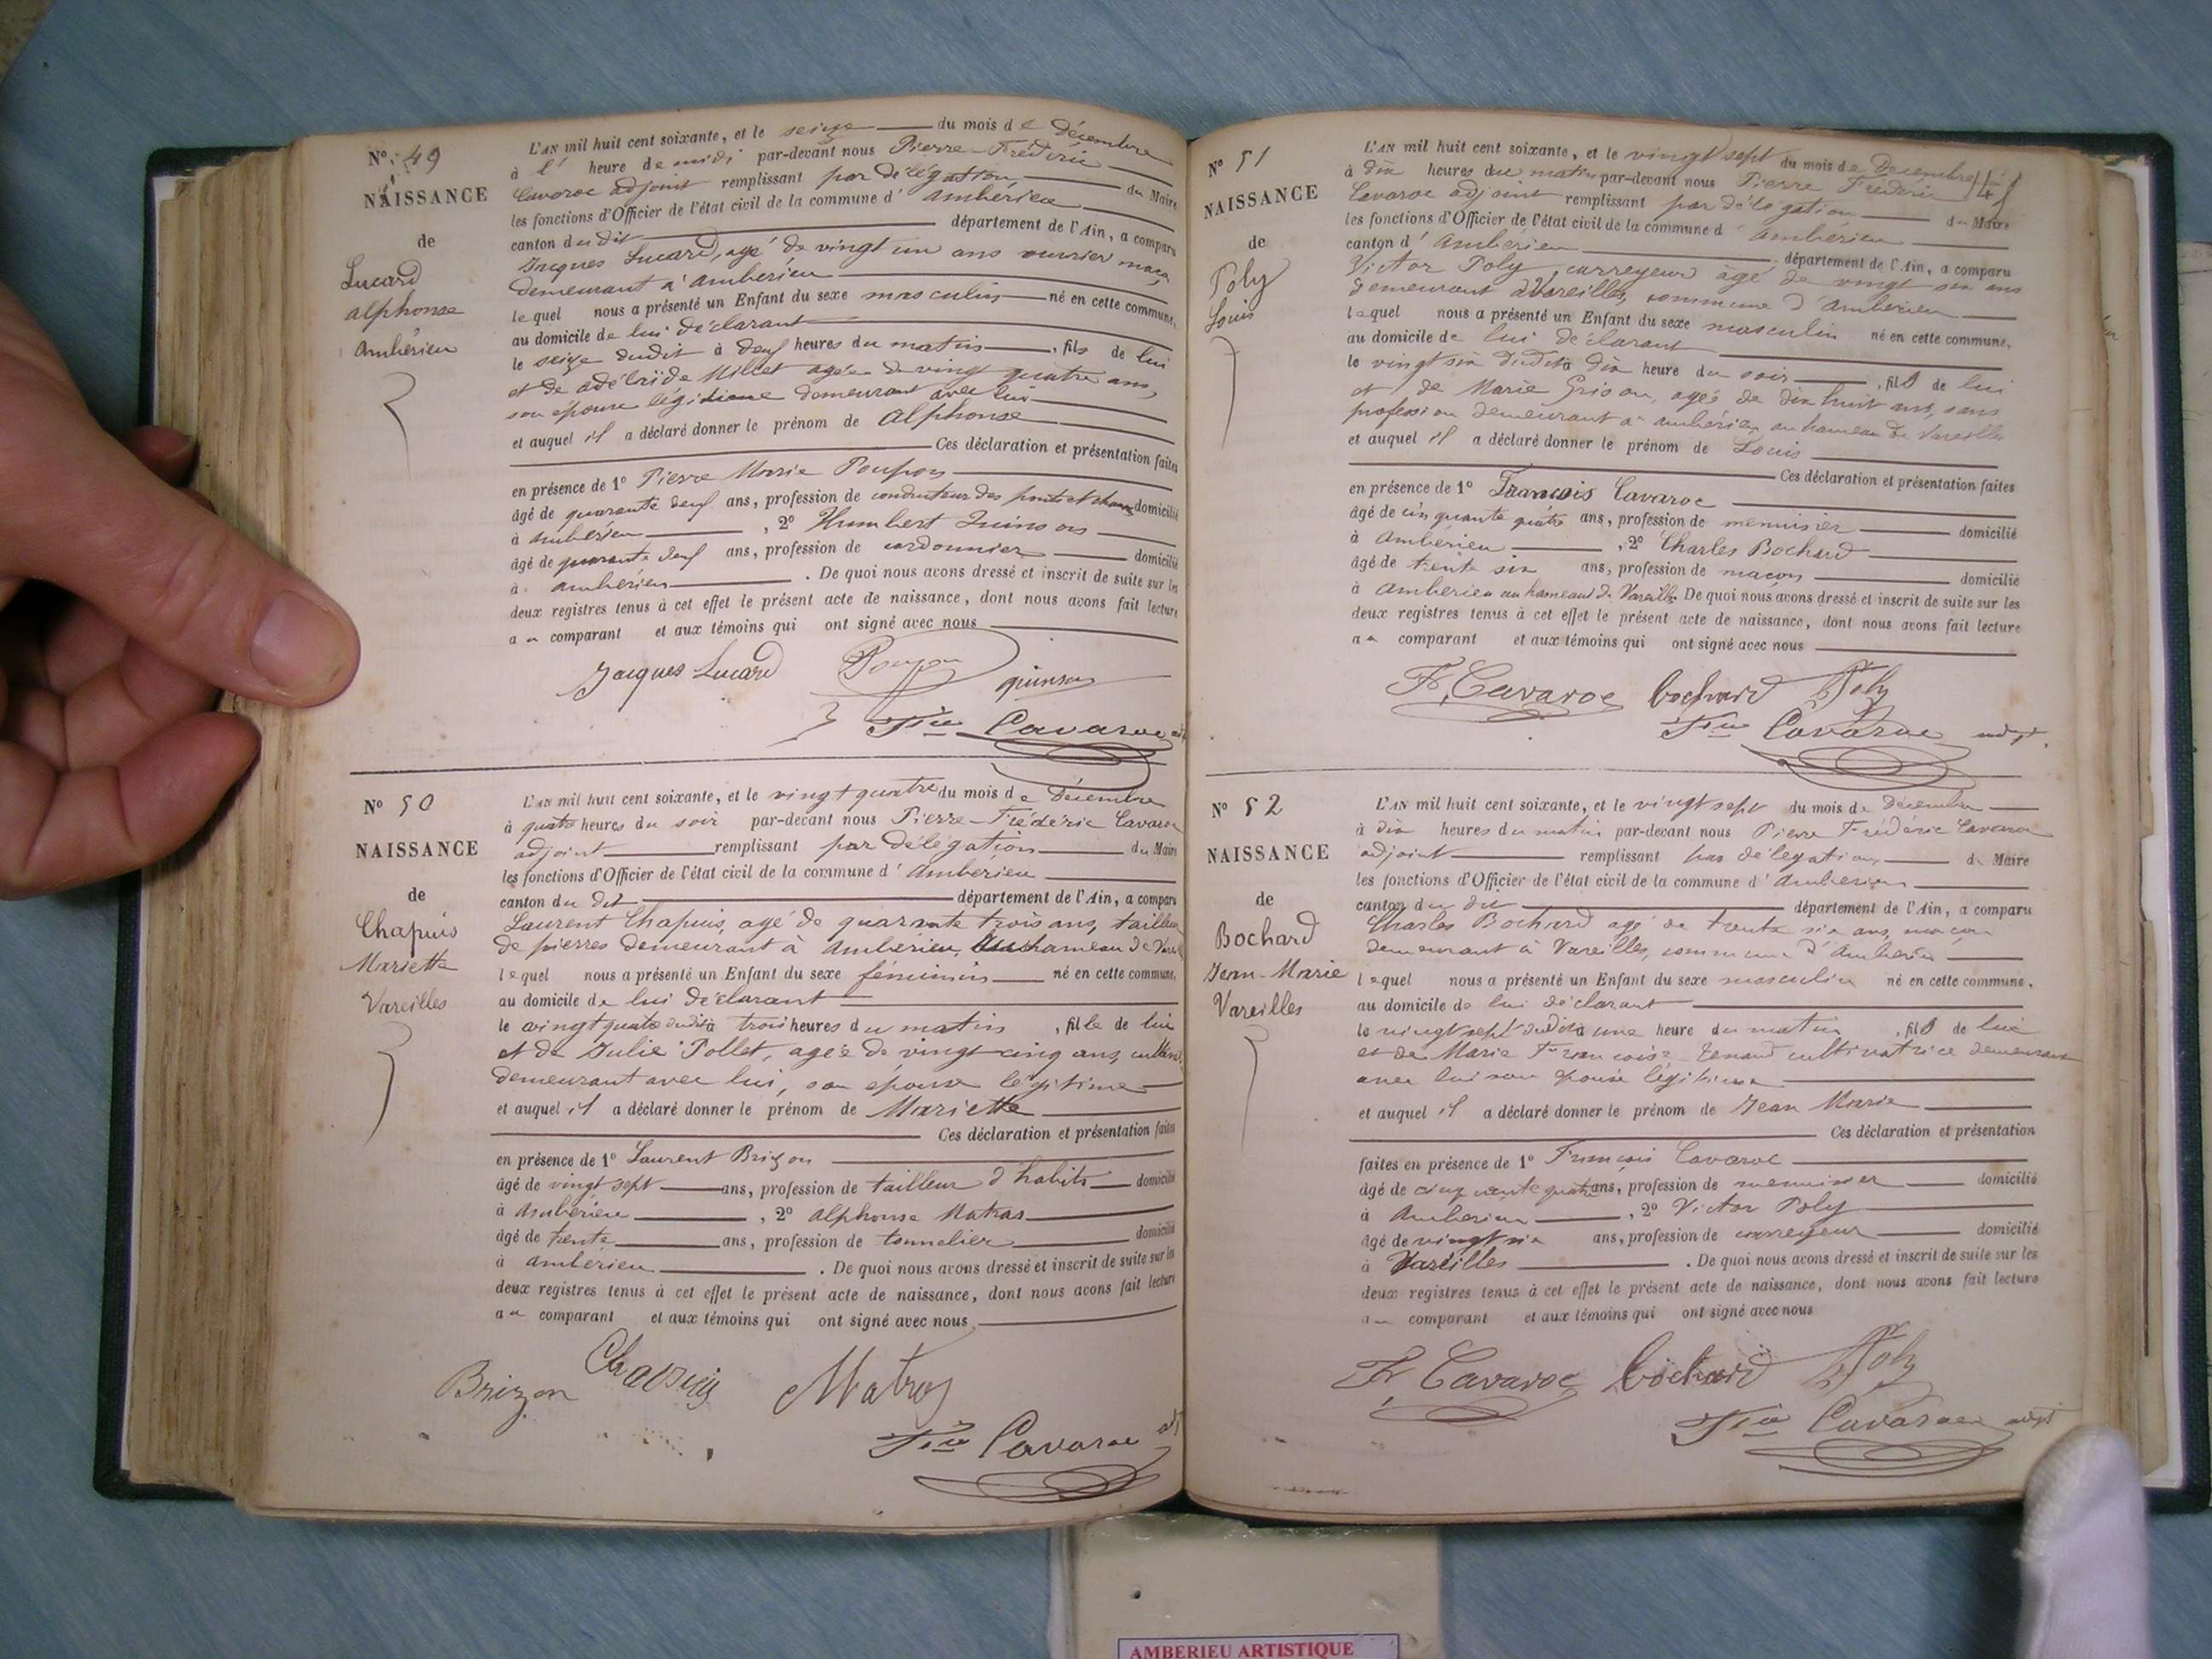 N° 49
NAISSANCE
de
Lucard
alphonse
Ambérieu
L'AN mil huit cent soixante, et le seize du mois de Décembre
à l' heure de midi par-devant nous Pierre-Frédéric
Cavaroc adjoint remplissant par délégation du Maire
les fonctions d'Officier de l'état civil de la commune d' Ambérieu
canton du dit département de l'Ain, a comparu
Jacques Lucard, agé de vingt un ans ouvrier maçon
demeurant à ambérieu
lequel nous a présenté un Enfant du sexe masculin né en cette commune,
au domicile de lui déclarant
le seize dudit à deux heures du matin, fils de lui
et de adélaïde Millet agée de vingt quatre ans,
son épouse légitime demeurant avec lui
et auquel il a déclaré donner le prénom de Alphonse
Ces déclaration et présentation faites
en présence de 1° Pierre Marie
âgé de quarante neuf ans, profession de conducteur des ponts et domicilié
à ambérieu, 2° Humbert Quinson
âgé de quarante neuf ans, profession de cordonnier domicilié
à ambérieu. De quoi nous avons dressé et inscrit de suite sur les
deux registres tenus à cet effet le présent acte de naissance, dont nous avons fait lecture
au comparant et aux témoins qui ont signé avec nous
Jacques Lucard quinson
Fric Cavaroc adj
N° 50
NAISSANCE
de
Chapuis
Mariette
Vareilles
L'AN mil huit cent soixante, et le vingt quatre du mois de Décembre
à quatre heures du soir par-devant nous Pierre-Frédéric Cavaroc
adjoint remplissant par délégation du Maire
les fonctions d'Officier de l'état civil de la commune d' Ambérieu
canton du dit département de l'Ain, a comparu
Laurent Chapuis, agé de quarante trois ans, tailleur
de pierres demeurant à Ambérieu, au hameau de
lequel nous a présenté un Enfant du sexe féminin né en cette commune,
au domicile de lui déclarant
le vingt quatre dudit à trois heures du matin, fille de lui
et de Julie Pollet, agée de vingt cinq ans,
demeurant avec lui, son épouse légitime
et auquel il a déclaré donner le prénom de Mariette
Ces déclaration et présentation faites
en présence de 1° Laurent Brizon
âgé de vingt sept ans, profession de tailleur d'habits domicilié
à Ambérieu, 2° alphonse Matras
âgé de trente ans, profession de tonnelier domicilié
à ambérieu. De quoi nous avons dressé et inscrit de suite sur les
deux registres tenus à cet effet le présent acte de naissance, dont nous avons fait lecture
au comparant et aux témoins qui ont signé avec nous
Brizon Chapuis Matras
Fric Cavaroc adj
N° 51
NAISSANCE
de
Poly
Louis
L'AN mil huit cent soixante, et le vingt sept du mois de Décembre
à dix heures du matin par-devant nous Pierre Frédéric
Cavaroc adjoint remplissant par délégation du Maire
les fonctions d'Officier de l'état civil de la commune d' Ambérieu
canton d' Ambérieu département de l'Ain, a comparu
Victor Poly, carreyeur âgé de vingt six ans
demeurant à Vareilles, commune d'Ambérieu
lequel nous a présenté un Enfant du sexe masculin né en cette commune,
au domicile de lui déclarant
le vingt six dudit à dix heure du soir, fils de lui
et de Marie Grison, agée de dix huit ans, sans
profession demeurant à ambérieu au hameau de Vareilles
et auquel il a déclaré donner le prénom de Louis
Ces déclaration et présentation faites
en présence de 1° François Cavaroc
âgé de cinquante quatre ans, profession de menuisier domicilié
à Ambérieu, 2° Charles Bochard
âgé de trente six ans, profession de maçon domicilié
à Ambérieu au hameau de Vareilles De quoi nous avons dressé et inscrit de suite sur les
deux registres tenus à cet effet le présent acte de naissance, dont nous avons fait lecture
au comparant et aux témoins qui ont signé avec nous
Fr. Cavaroc bochard Poly
Fric Cavaroc adjt.
N° 52
NAISSANCE
de
Bochard
Jean-Marie
Vareilles
L'AN mil huit cent soixante, et le vingt sept du mois de Décembre
à dix heures du matin par-devant nous Pierre Frédéric Cavaroc
adjoint remplissant par délégation du Maire
les fonctions d'Officier de l'état civil de la commune d' Ambérieu
canton du dit département de l'Ain, a comparu
Charles Bochard agé de trente six ans, maçon
demeurant à Vareilles, commune d'Ambérieu
lequel nous a présenté un Enfant du sexe masculin né en cette commune,
au domicile de lui déclarant
le vingt sept dudit à une heure du matin, fils de lui
et de Marie Françoise Tenand cultivatrice demeurant
avec lui son épouse légitime
et auquel il a déclaré donner le prénom de Jean Marie
Ces déclaration et présentation
faites en présence de 1° François Cavaroc
âgé de cinquante quatre ans, profession de menuisier domicilié
à Ambérieu, 2° Victor Poly
âgé de vingt six ans, profession de carreyeur domicilié
à Vareilles. De quoi nous avons dressé et inscrit de suite sur les
deux registres tenus à cet effet le présent acte de naissance, dont nous avons fait lecture
au comparant et aux témoins qui ont signé avec nous
Fr. Cavaroc bochard Poly
Fric Cavaroc adjt
AMBERIEU ARTISTIQUE